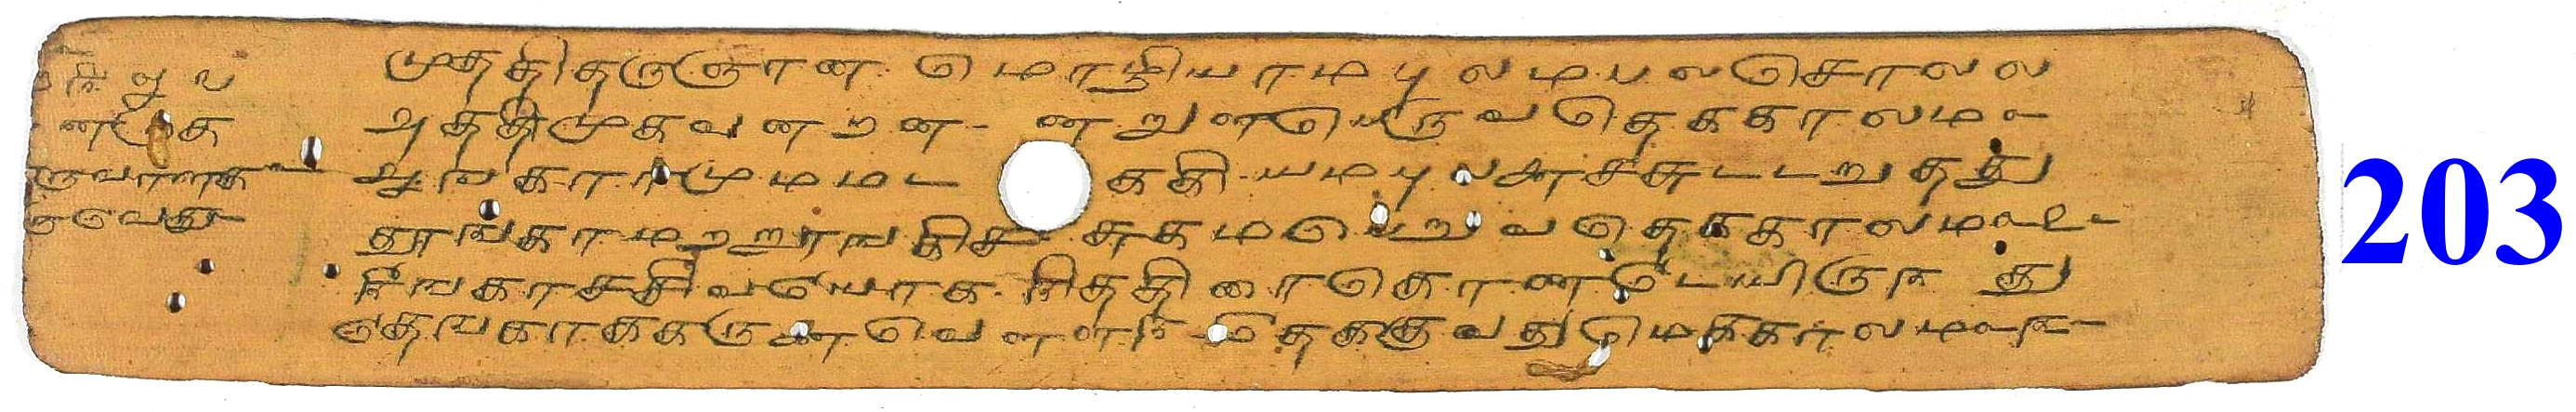 முததிதருஞான மொழியாமபுலமபலசொலல
அததிமுகவனறன- னறுளபெருவதெககாலம௧-
ஆஙகாரமுமமட ககியமபுலனசசுடடறுதது
தூஙகாமறறூஙகிச சுகமபெறுவதெககாலம௨-
நீஙகாசசிவயோக நிததிரைகொணடேயிருநது
தேஙகாககருணைவெளளந தேககுவதுமெககாலம௩-
203